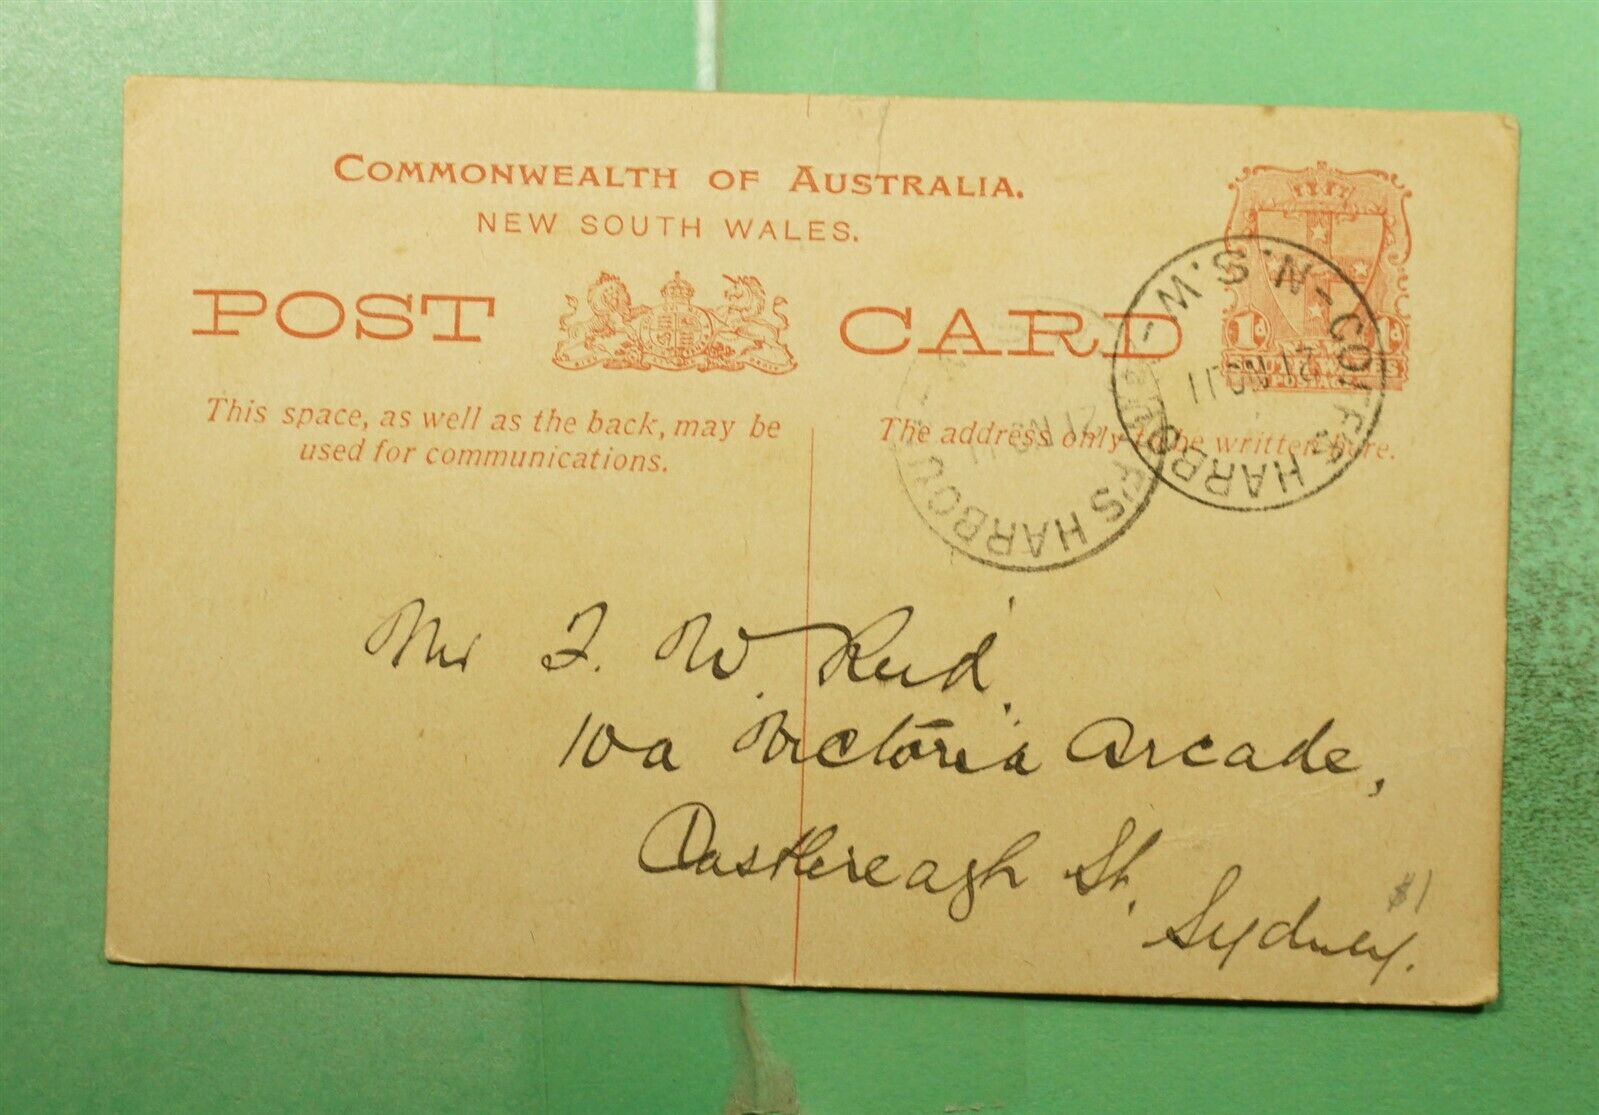 COMMONWEALTH OF AUSTRALIA.
NEW SOUTH WALES.
POST CARD
This space, as well as the back, may be
used for communications.
The address only to be written here.
1d
COFF'S HARBOUR - N.S.W -
21 NO 11
F'S HARBOU
21 NO 11
Mr F. W. Reid.
10a Victoria Arcade,
Castlereagh St,
Sydney.
$1